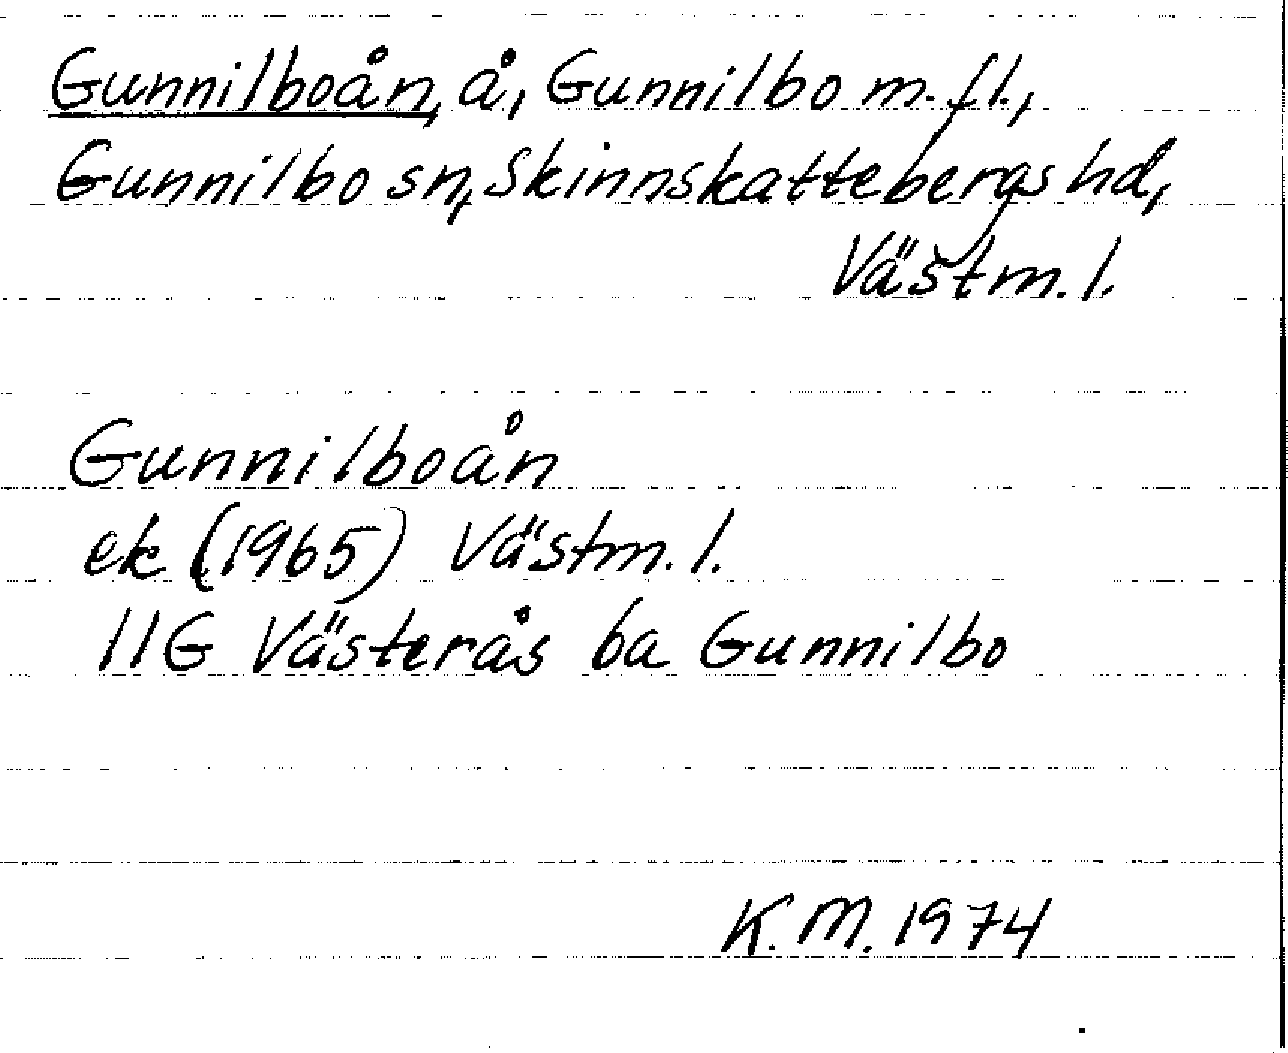 Gunnilboån, å, Gunnilbo m.fl.,
Gunnilbo sn, Skinnskattebergs hd,
Västm. l.
Gunnilboån
ek (1965) Västm. l.
11G Västerås 6a Gunnilbo
K. M. 1974